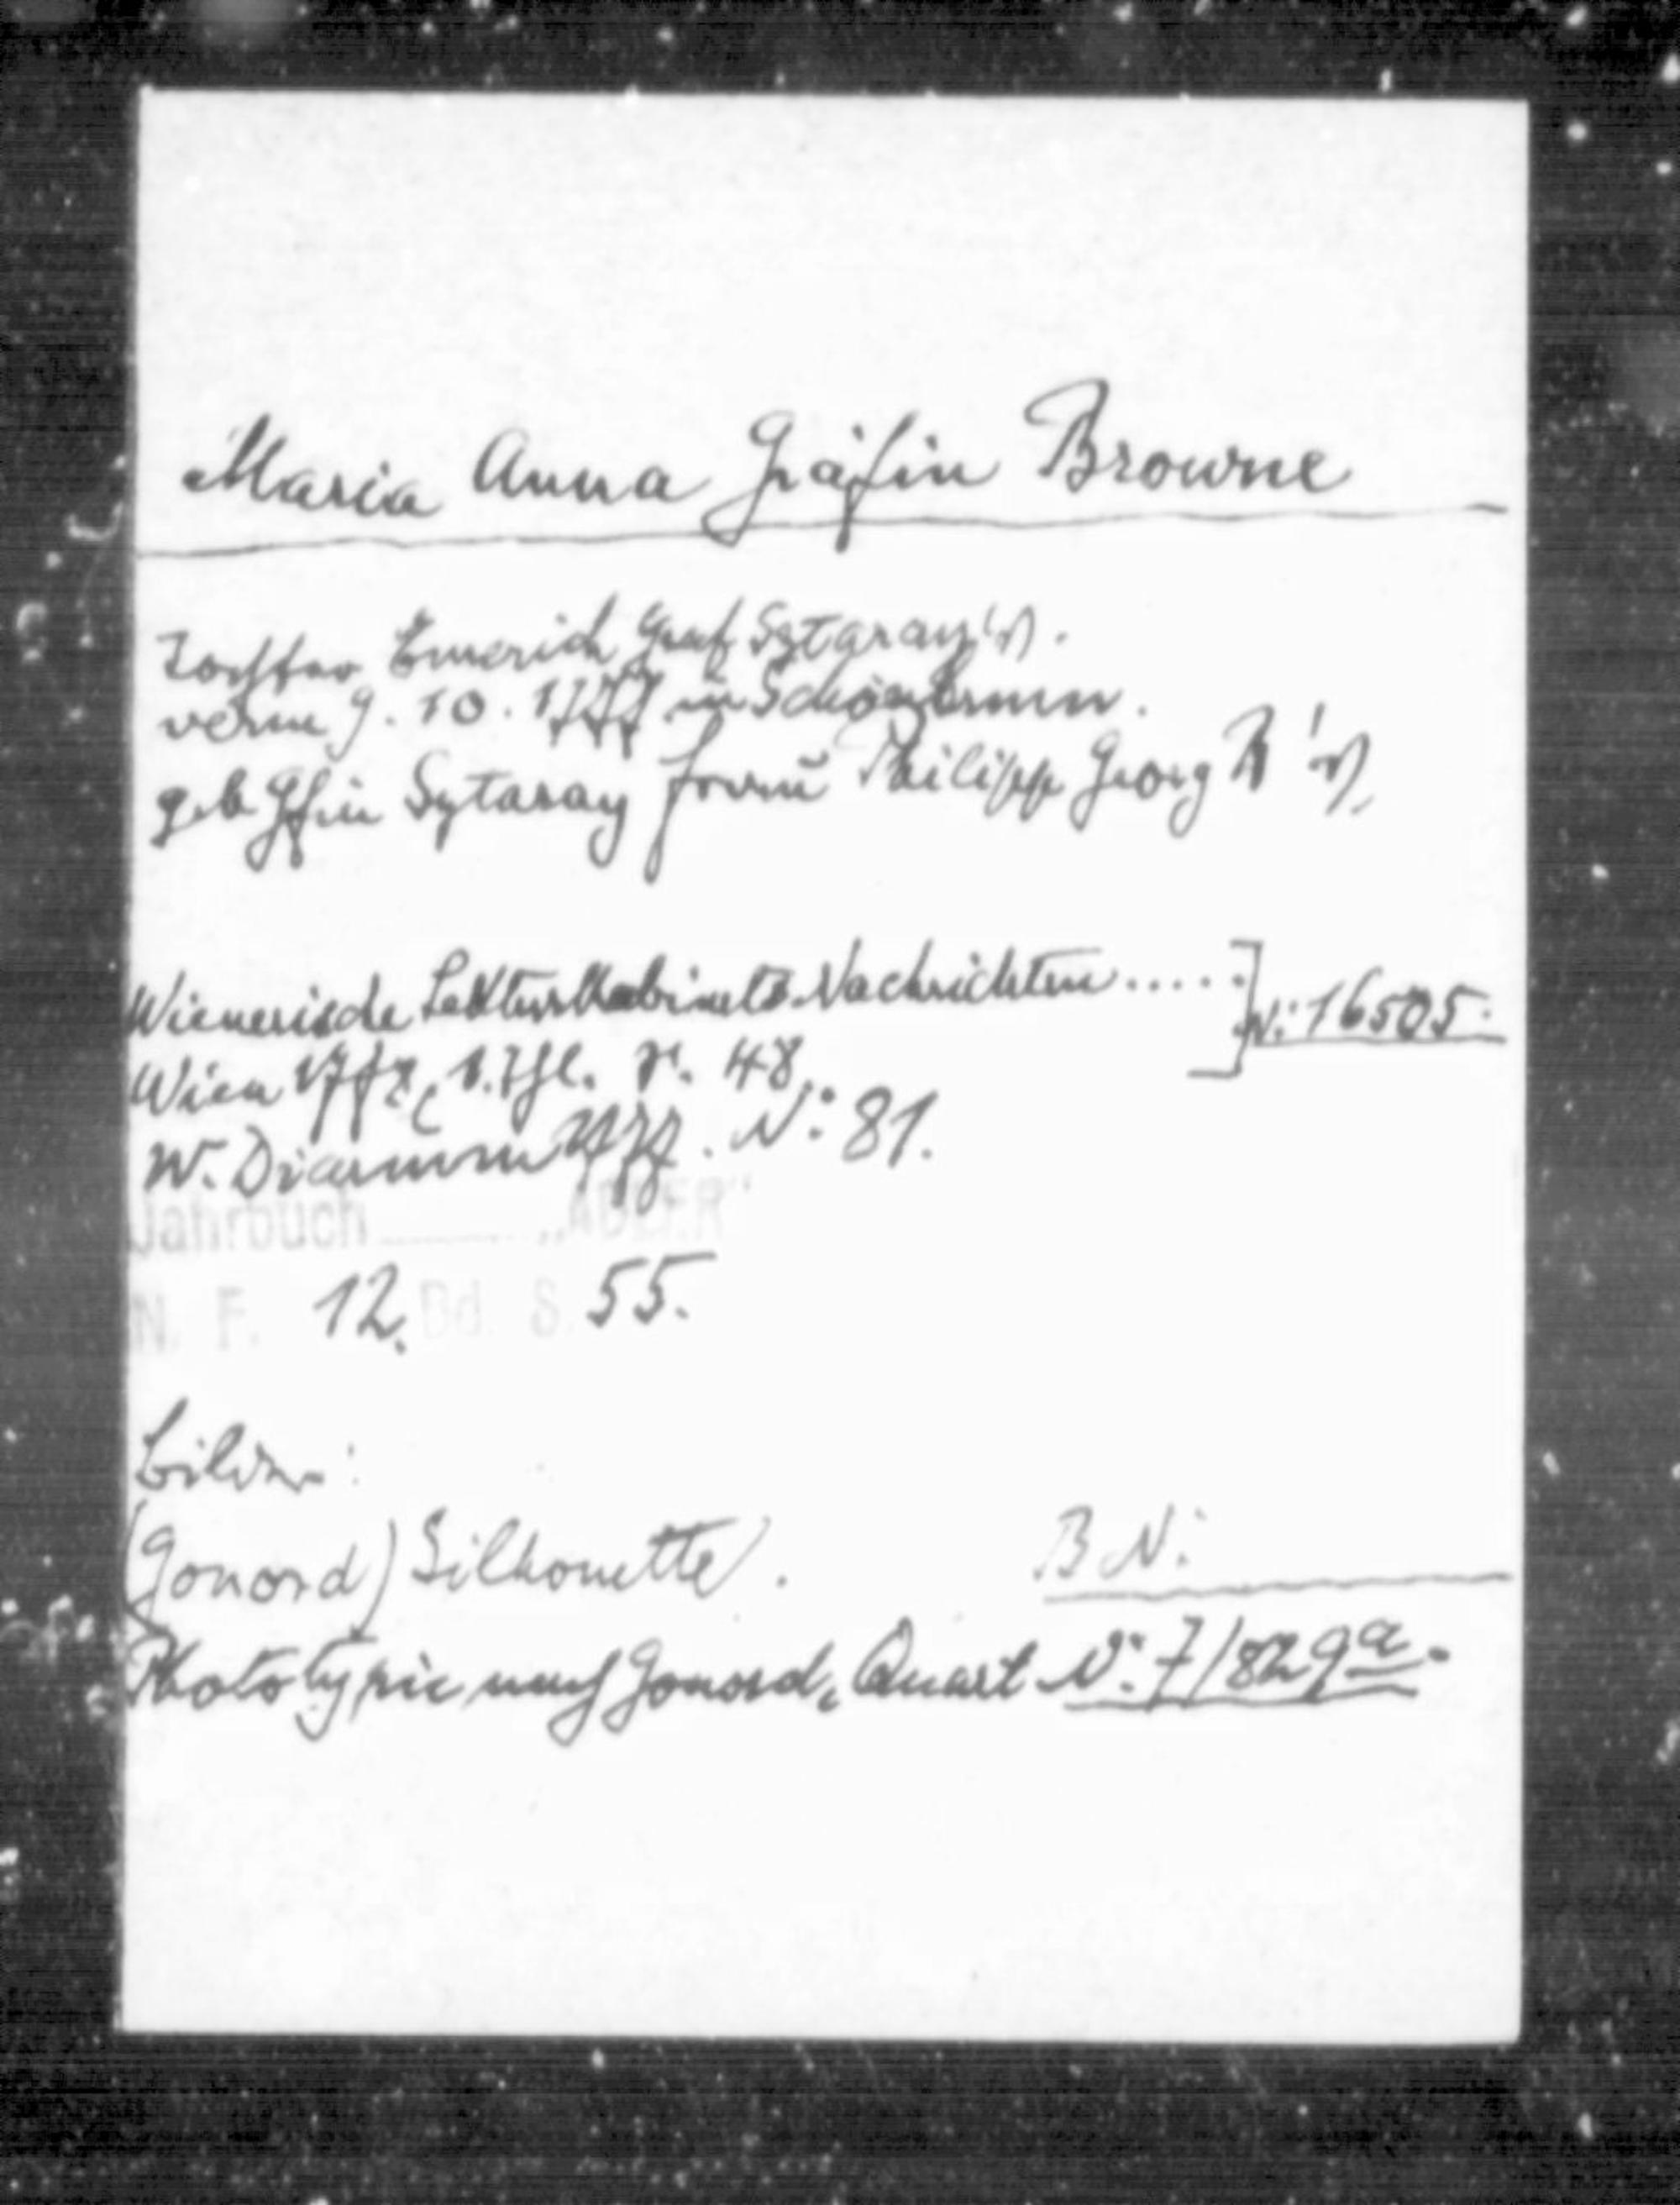 Maria Anna Gräfin Browne
Tochter Emerich Graf Sztaray's.
verm 9. 10. 1777 in Schönbrunn.
geb Gfin Sztaray Philipp Georg B's
Wienerische Lekturkabinets-Nachrichten .....] N: 16505.
Wien 177 1. Thl. p. 48
W. Diarium 1777. N: 81.
Jahrbuch „ADLER"
N. F. 12. Bd. S. 55.
Bilder:
(Gonord) Silhouette. B N:
Phototypie nach Gonord, Quart N: 7/829a.